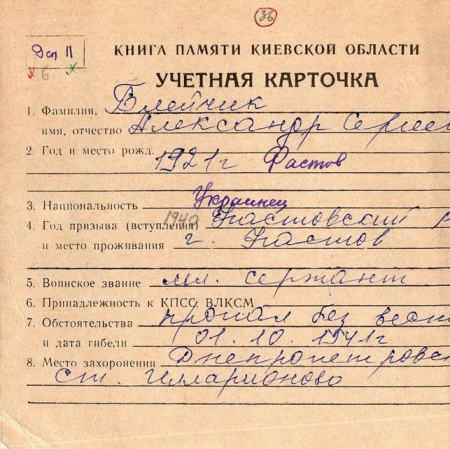 36
Доп 11
6 х
КНИГА ПАМЯТИ КИЕВСКОЙ ОБЛАСТИ
УЧЕТНАЯ КАРТОЧКА
1. Фамилия, Блейчик
имя, отчество Александр Сергее
2. Год и место рожд. 1921 г Фастов
3. Национальность Украинец
4. Год призыва (вступления) 1940 Фастовский Р
и место проживания г. Фастов
5. Воинское звание мл. сержант
6. Принадлежность к КПСС ВЛКСМ
7. Обстоятельства пропал без вест
и дата гибели 01.10.1941г
8. Место захоронения Днепропетровс
ст. Илларионово